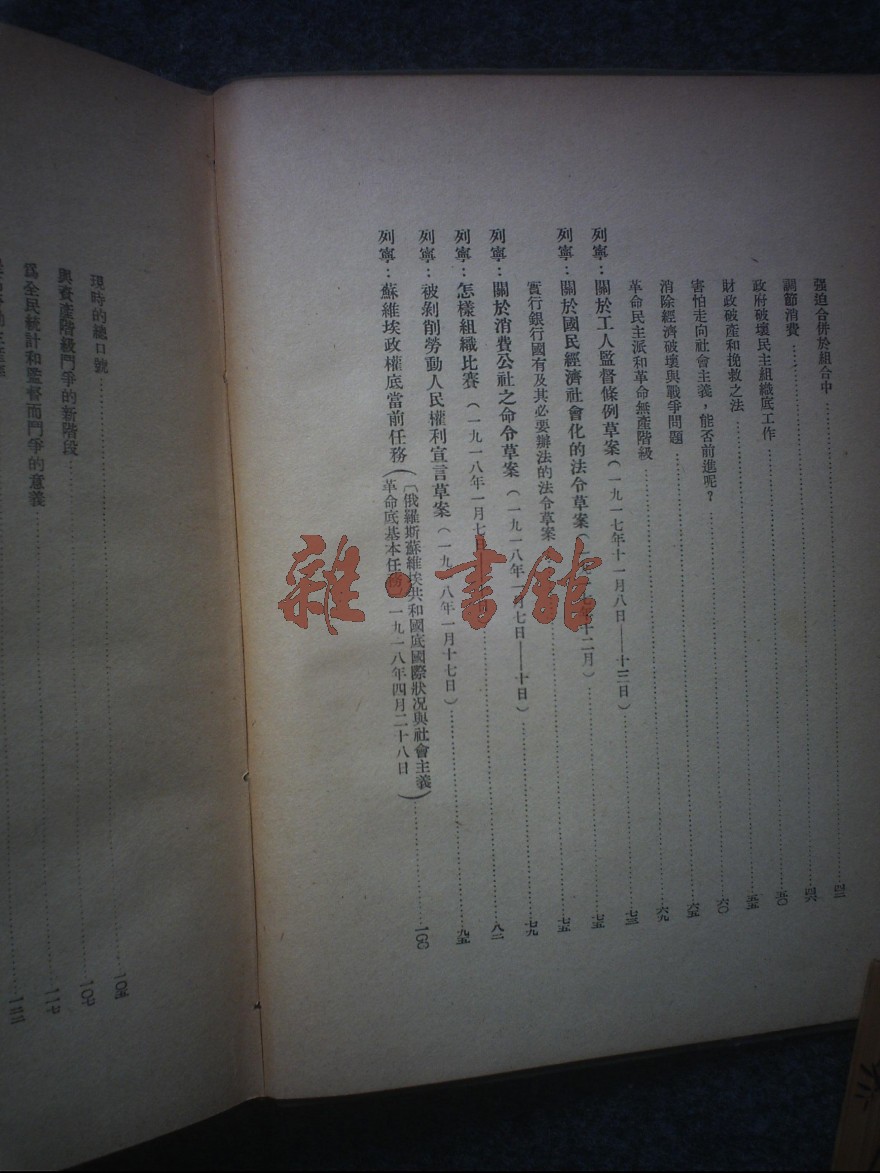 强迫合併於組合中……四三
調節消費……四六
政府破壞民主組織底工作……五〇
財政破產和挽救之法……五五
害怕走向社會主義，能否前進呢？……六〇
消除經濟破壞與戰爭問題……六五
革命民主派和革命無產階級……六九
列寧：關於工人監督條例草案（一九一七年十一月八日——十三日）……七三
列寧：關於國民經濟社會化的法令草案（ 十二月）……七五
實行銀行國有及其必要辦法的法令草案……七五
列寧：關於消費公社之命令草案（一九一八年 月七日——十日）……七九
列寧：怎樣組織比賽（一九一八年一月七日 ）……八二
列寧：被剝削勞動人民權利宣言草案（一九一八年一月十七日）……九五
列寧：蘇維埃政權底當前任務（〔俄羅斯蘇維埃共和國底國際狀况與社會主義
革命底基本任務〕一九一八年四月二十八日）……一〇〇
現時的總口號……一〇五
與資產階級鬥爭的新階段……一〇七
爲全民統計和監督而鬥爭的意義……一一七
一二三
雜·書館